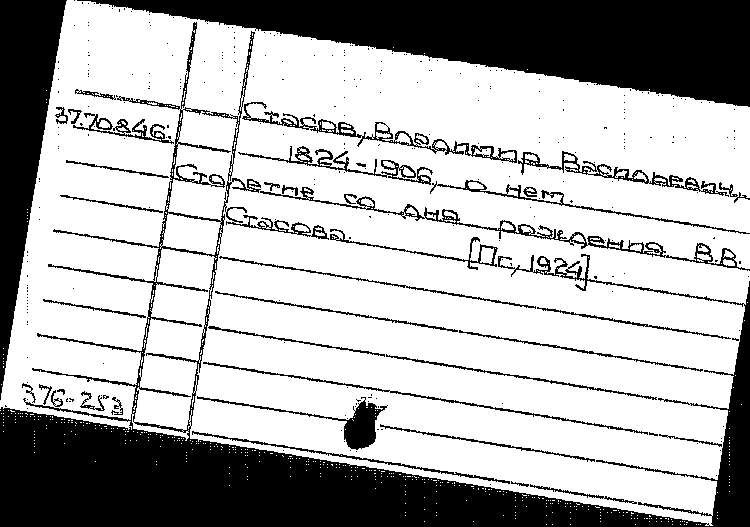 Стасов, Владимир Васильевич,
37.70.846.
1824-1906, о нем.
Столетие со дня рождения В.В.
Стасова. [Пг., 1924].
376-253